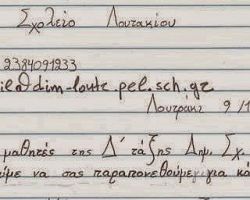 Σχολείο Λουτακίου
2384091233
il@dim-loutr.pel.sch.gr
Λουτράκι 9/1
μαθητές της Δ' τάξης Δημ. Σχ.
ούμε να σας παραπονεθούμε για κά